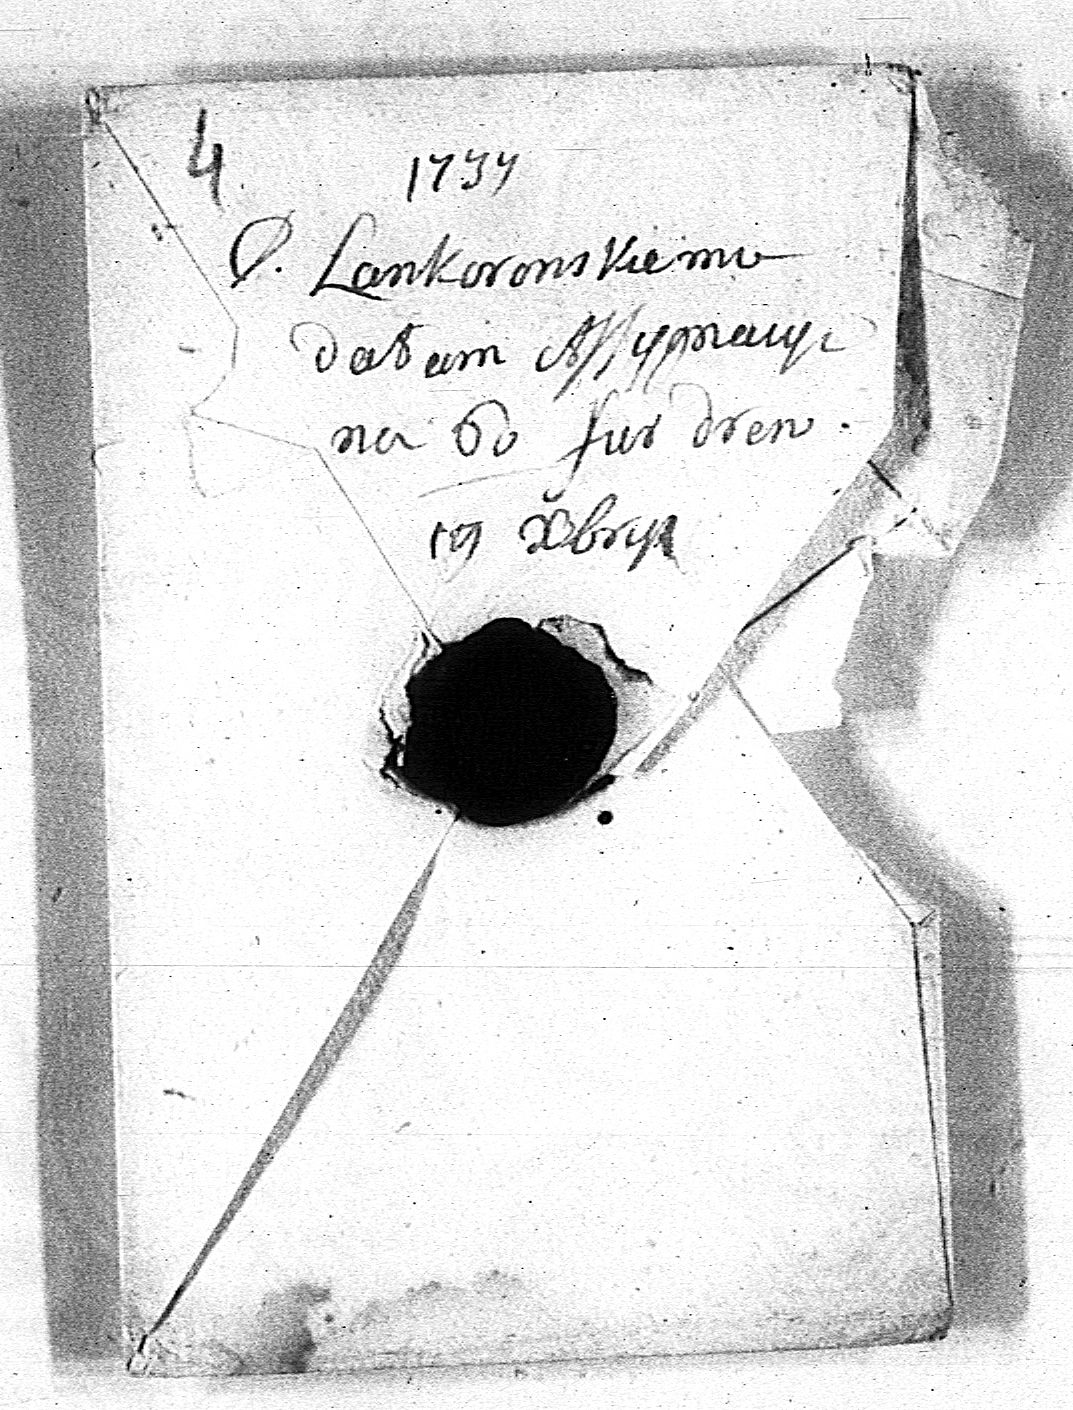 4.
1737
P. Lankoronskiemu
dałam Assygnacyi
na 60 fur drew.
19 Xbrys